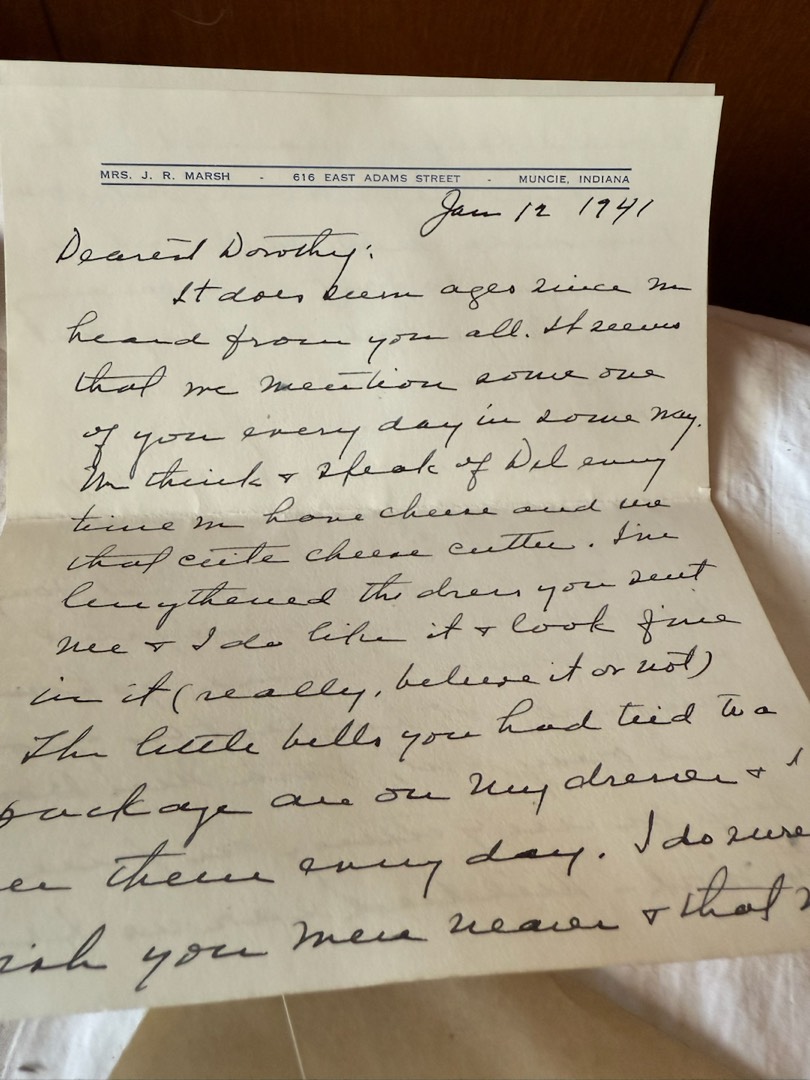 MRS. J. R. MARSH - 616 EAST ADAMS STREET - MUNCIE, INDIANA
Jan 12 1941
Dearest Dorothy:
It does seem ages since we
heard from you all. It seems
that we mention some one
of you every day in some way.
We think & speak of Del every
time we have cheese and use
that cute cheese cutter. I've
lengthened the dress you sent
me & I do like it & look fine
in it (really, believe it or not)
The little bells you had tied to a
package are on my dresser & I
see them every day. I do sure
wish you were nearer & that